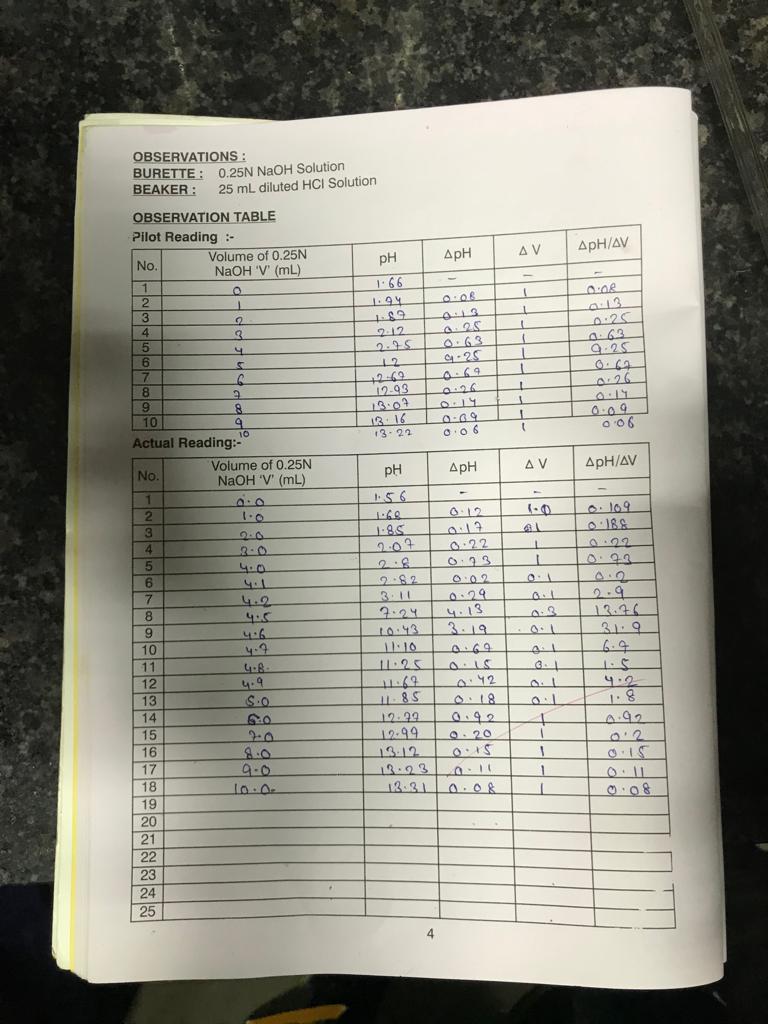 OBSERVATIONS :
BURETTE : 0.25N NaOH Solution
BEAKER : 25 mL diluted HCl Solution
OBSERVATION TABLE
Pilot Reading :-
No. Volume of 0.25N NaOH 'V' (mL) pH ΔpH ΔV ΔpH/ΔV
1 0 1.66 - - -
2 1 1.74 0.08 1 0.08
3 2 1.87 0.13 1 0.13
4 3 2.12 0.25 1 0.25
5 4 2.75 0.63 1 0.63
6 5 12 9.25 1 9.25
7 6 12.67 0.67 1 0.67
8 7 12.93 0.26 1 0.26
9 8 13.07 0.14 1 0.14
10 9 13.16 0.09 1 0.09
10 13.22 0.06 1 0.06
Actual Reading:-
No. Volume of 0.25N NaOH 'V' (mL) pH ΔpH ΔV ΔpH/ΔV
1 0.0 1.56 - - -
2 1.0 1.68 0.12 1.0 0.109
3 2.0 1.85 0.17 1 0.188
4 3.0 2.07 0.22 1 0.22
5 4.0 2.8 0.73 1 0.73
6 4.1 2.82 0.02 0.1 0.2
7 4.2 3.11 0.29 0.1 2.9
8 4.5 7.24 4.13 0.3 13.76
9 4.6 10.43 3.19 0.1 31.9
10 4.7 11.10 0.67 0.1 6.7
11 4.8 11.25 0.15 0.1 1.5
12 4.9 11.67 0.42 0.1 4.2
13 5.0 11.85 0.18 0.1 1.8
14 6.0 12.77 0.92 1 0.92
15 7.0 12.99 0.20 1 0.2
16 8.0 13.12 0.15 1 0.15
17 9.0 13.23 0.11 1 0.11
18 10.0 13.31 0.08 1 0.08
19
20
21
22
23
24
25
4